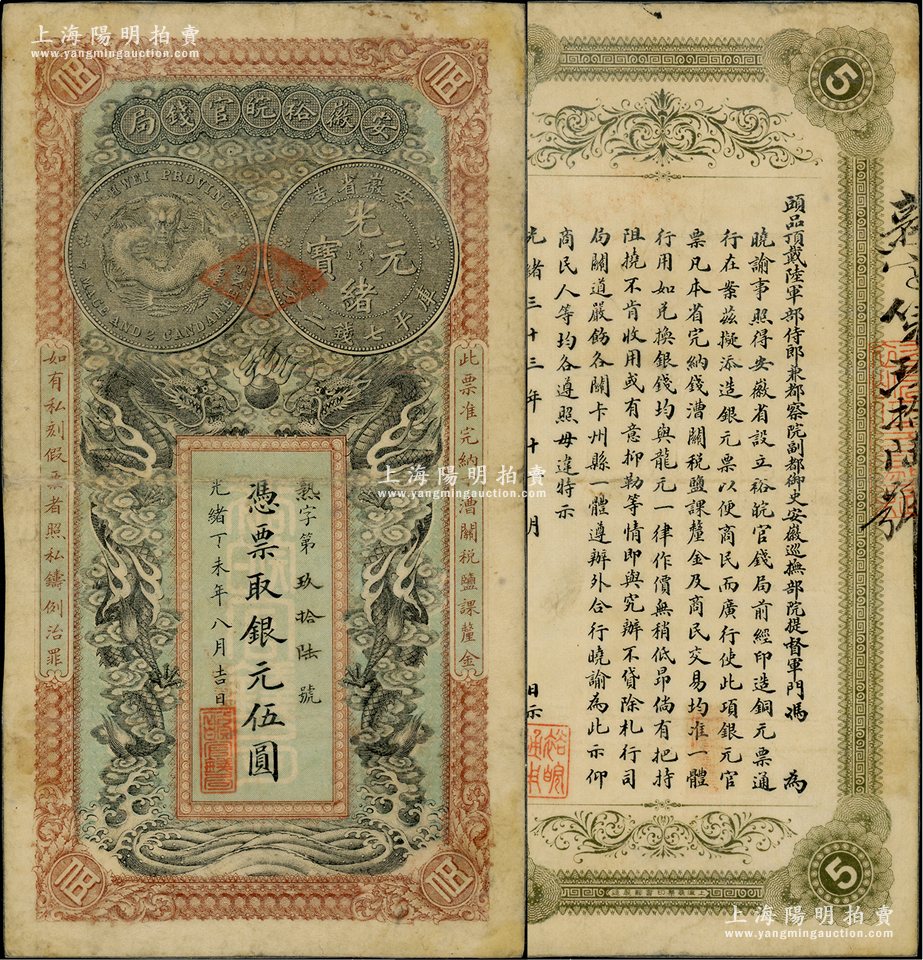 上海陽明拍賣
www.yangmingauction.com
安徽裕皖官錢局
AN-HWEI PROVINCE
7 MACE AND 2 CANDAREENS
安徽省造
光緒元寶
庫平七錢二
此票准完納
漕關稅鹽課釐金
如有私刻假票者照私鑄例治罪
熟字第玖拾陸號
憑票取銀元伍圓
光緒丁未年八月吉日
上海陽明拍賣
www.yangmingauction.com
5
頭品頂戴陸軍部侍郎兼都察院副都御史安徽巡撫部院提督軍門馮 為
曉諭事照得安徽省設立裕皖官錢局前經印造銅元票通
行在案茲擬添造銀元票以便商民而廣行使此項銀元官
票凡本省完納錢漕關稅鹽課釐金及商民交易均准一體
行用如兌換銀錢均與龍元一律作價無稍低昂倘有把持
阻撓不肯收用或有意抑勒等情即與究辦不貸除札行司
局關道嚴飭各關卡州縣一體遵辦外合行曉諭為此示仰
商民人等均各遵照毋違特示
光緒三十三年十 月 日示
裕皖
5
上海陽明拍賣
www.yangmingauction.com